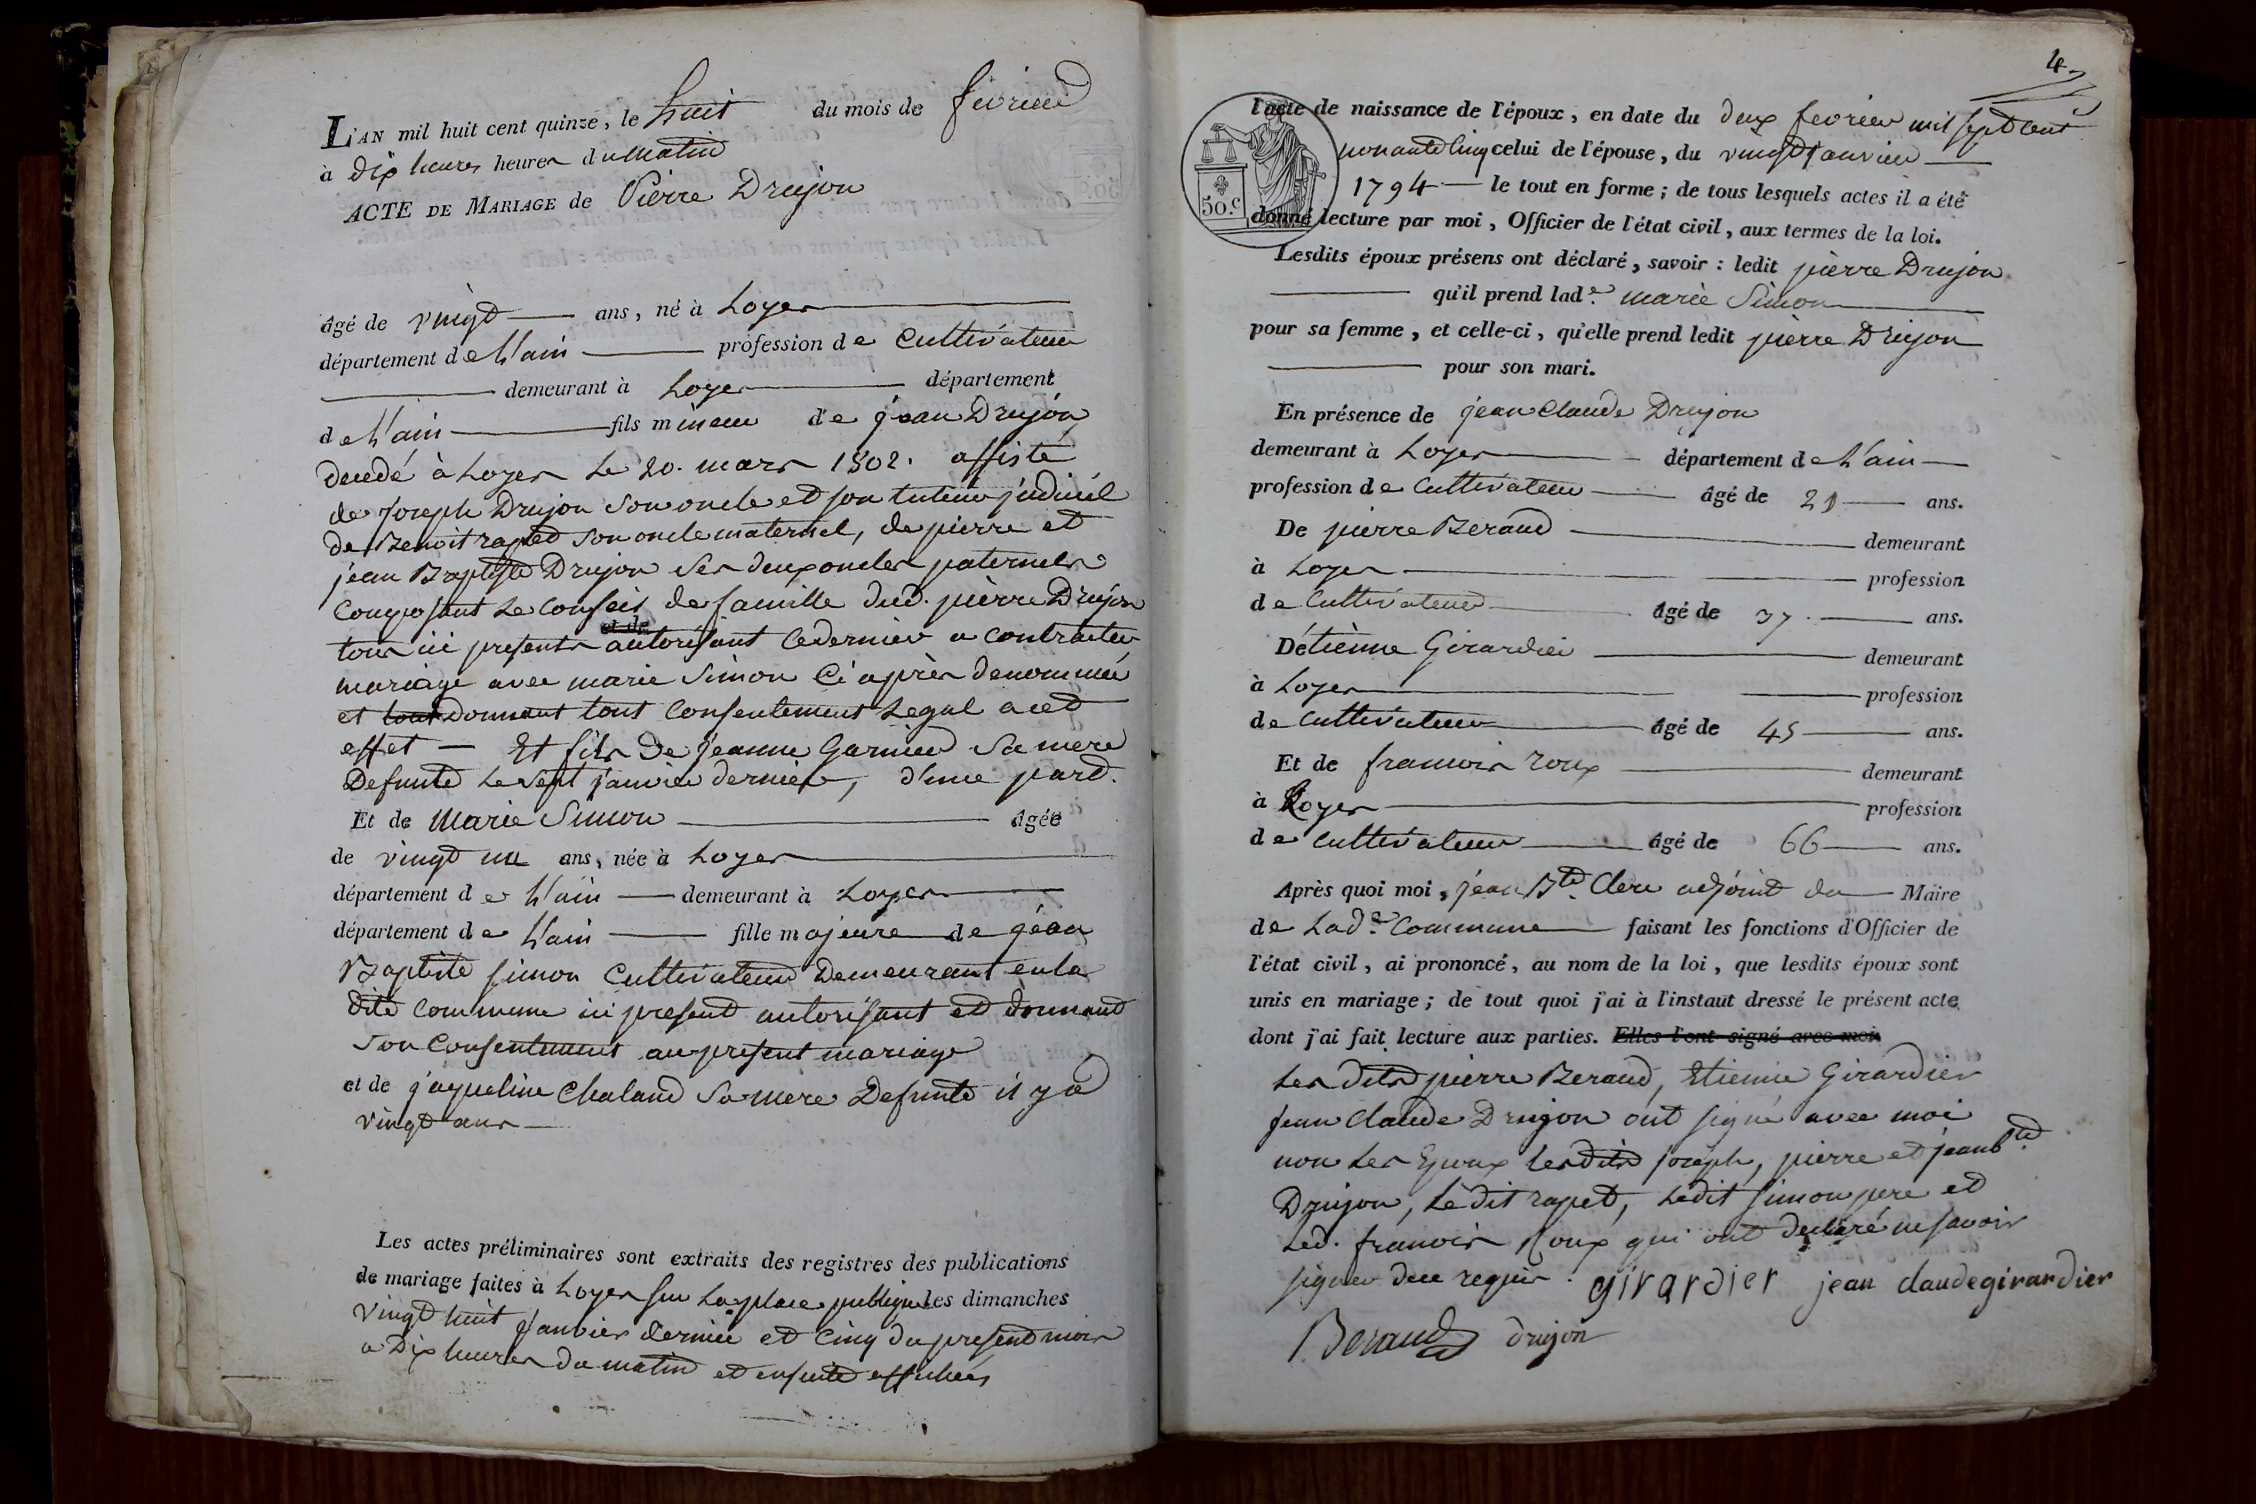 L'AN mil huit cent quinze, le huit du mois de fevrier
à dix heures heures du matin
ACTE DE MARIAGE de Pierre Drujon
âgé de vingt ans, né à Loyes
département de L'ain profession de Cultivateur
demeurant à Loyes département
de L'ain fils mineur de jean Drujon
decedé à Loyes Le 20. mars 1802. assisté
de Joseph Drujon son oncle et son tuteur
de Benoit rapet son oncle maternel, de pierre et
jean Baptiste Drujon ses deux oncles paternels
Composant Le Conseil de famille dud. pierre Drujon
et de
tous ici presents autorisant Ce dernier a contracter
mariage avec marie Simon Ci après denommée
et tout donnant tout Consentement Legal a cet
effet — Et fils De jeanne Garnier Sa mere
Defunte Le sept janvier dernier, d'une part.
Et de Marie Simon âgée
de vingt un ans, née à Loyes
département de L'ain demeurant à Loyes
département de L'ain fille majeure de jéan
Baptiste simon Cultivateur Demeurant en la
dite Commune ici present autorisant et donnant
Son Consentement au present mariage
et de jaqueline Chaland Sa mere Defunte il y a
vingt ans
Les actes préliminaires sont extraits des registres des publications
de mariage faites à Loyes sur La place publique les dimanches
vingt huit janvier dernier et Cinq du present mois
a Dix heures du matin et ensuite affichés
4
l'acte de naissance de l'époux, en date du deux fevrier mil sept cent
nonante Cinq celui de l'épouse, du vingt janvier
1794 le tout en forme; de tous lesquels actes il a été
50.c
donné lecture par moi, Officier de l'état civil, aux termes de la loi.
Lesdits époux présens ont déclaré, savoir : ledit pierre Drujon
qu'il prend lad.e marie Simon
pour sa femme, et celle-ci, qu'elle prend ledit pierre Drujon
pour son mari.
En présence de jean Claude Drujon
demeurant à Loyes département de L'ain
profession de Cultivateur âgé de 21 ans.
De pierre Beraud demeurant
à Loyes profession
de Cultivateur âgé de 37 ans.
Détienne Girardier demeurant
à Loyes profession
de Cultivateur âgé de 45 ans.
Et de francois roux demeurant
à Loyes profession
de Cultivateur âgé de 66 ans.
Après quoi moi, jean Bte. Clerc adjoint du Maire
de Lad.e Commune faisant les fonctions d'Officier de
l'état civil, ai prononcé, au nom de la loi, que lesdits époux sont
unis en mariage; de tout quoi j'ai à l'instant dressé le présent acte
dont j'ai fait lecture aux parties. Elles l'ont signé avec moi
Les dits pierre Beraud, Etienne Girardier
Jean Claude Drujon ont signé avec moi
non Les Epoux Lesdits joseph, pierre et jean bte.
Drujon, Le dit rapet, Ledit simon pere et
Led. francois Roux qui ont declaré ne savoir
signer de ce requis. girardier jean claudegirardier
Beraud drujon